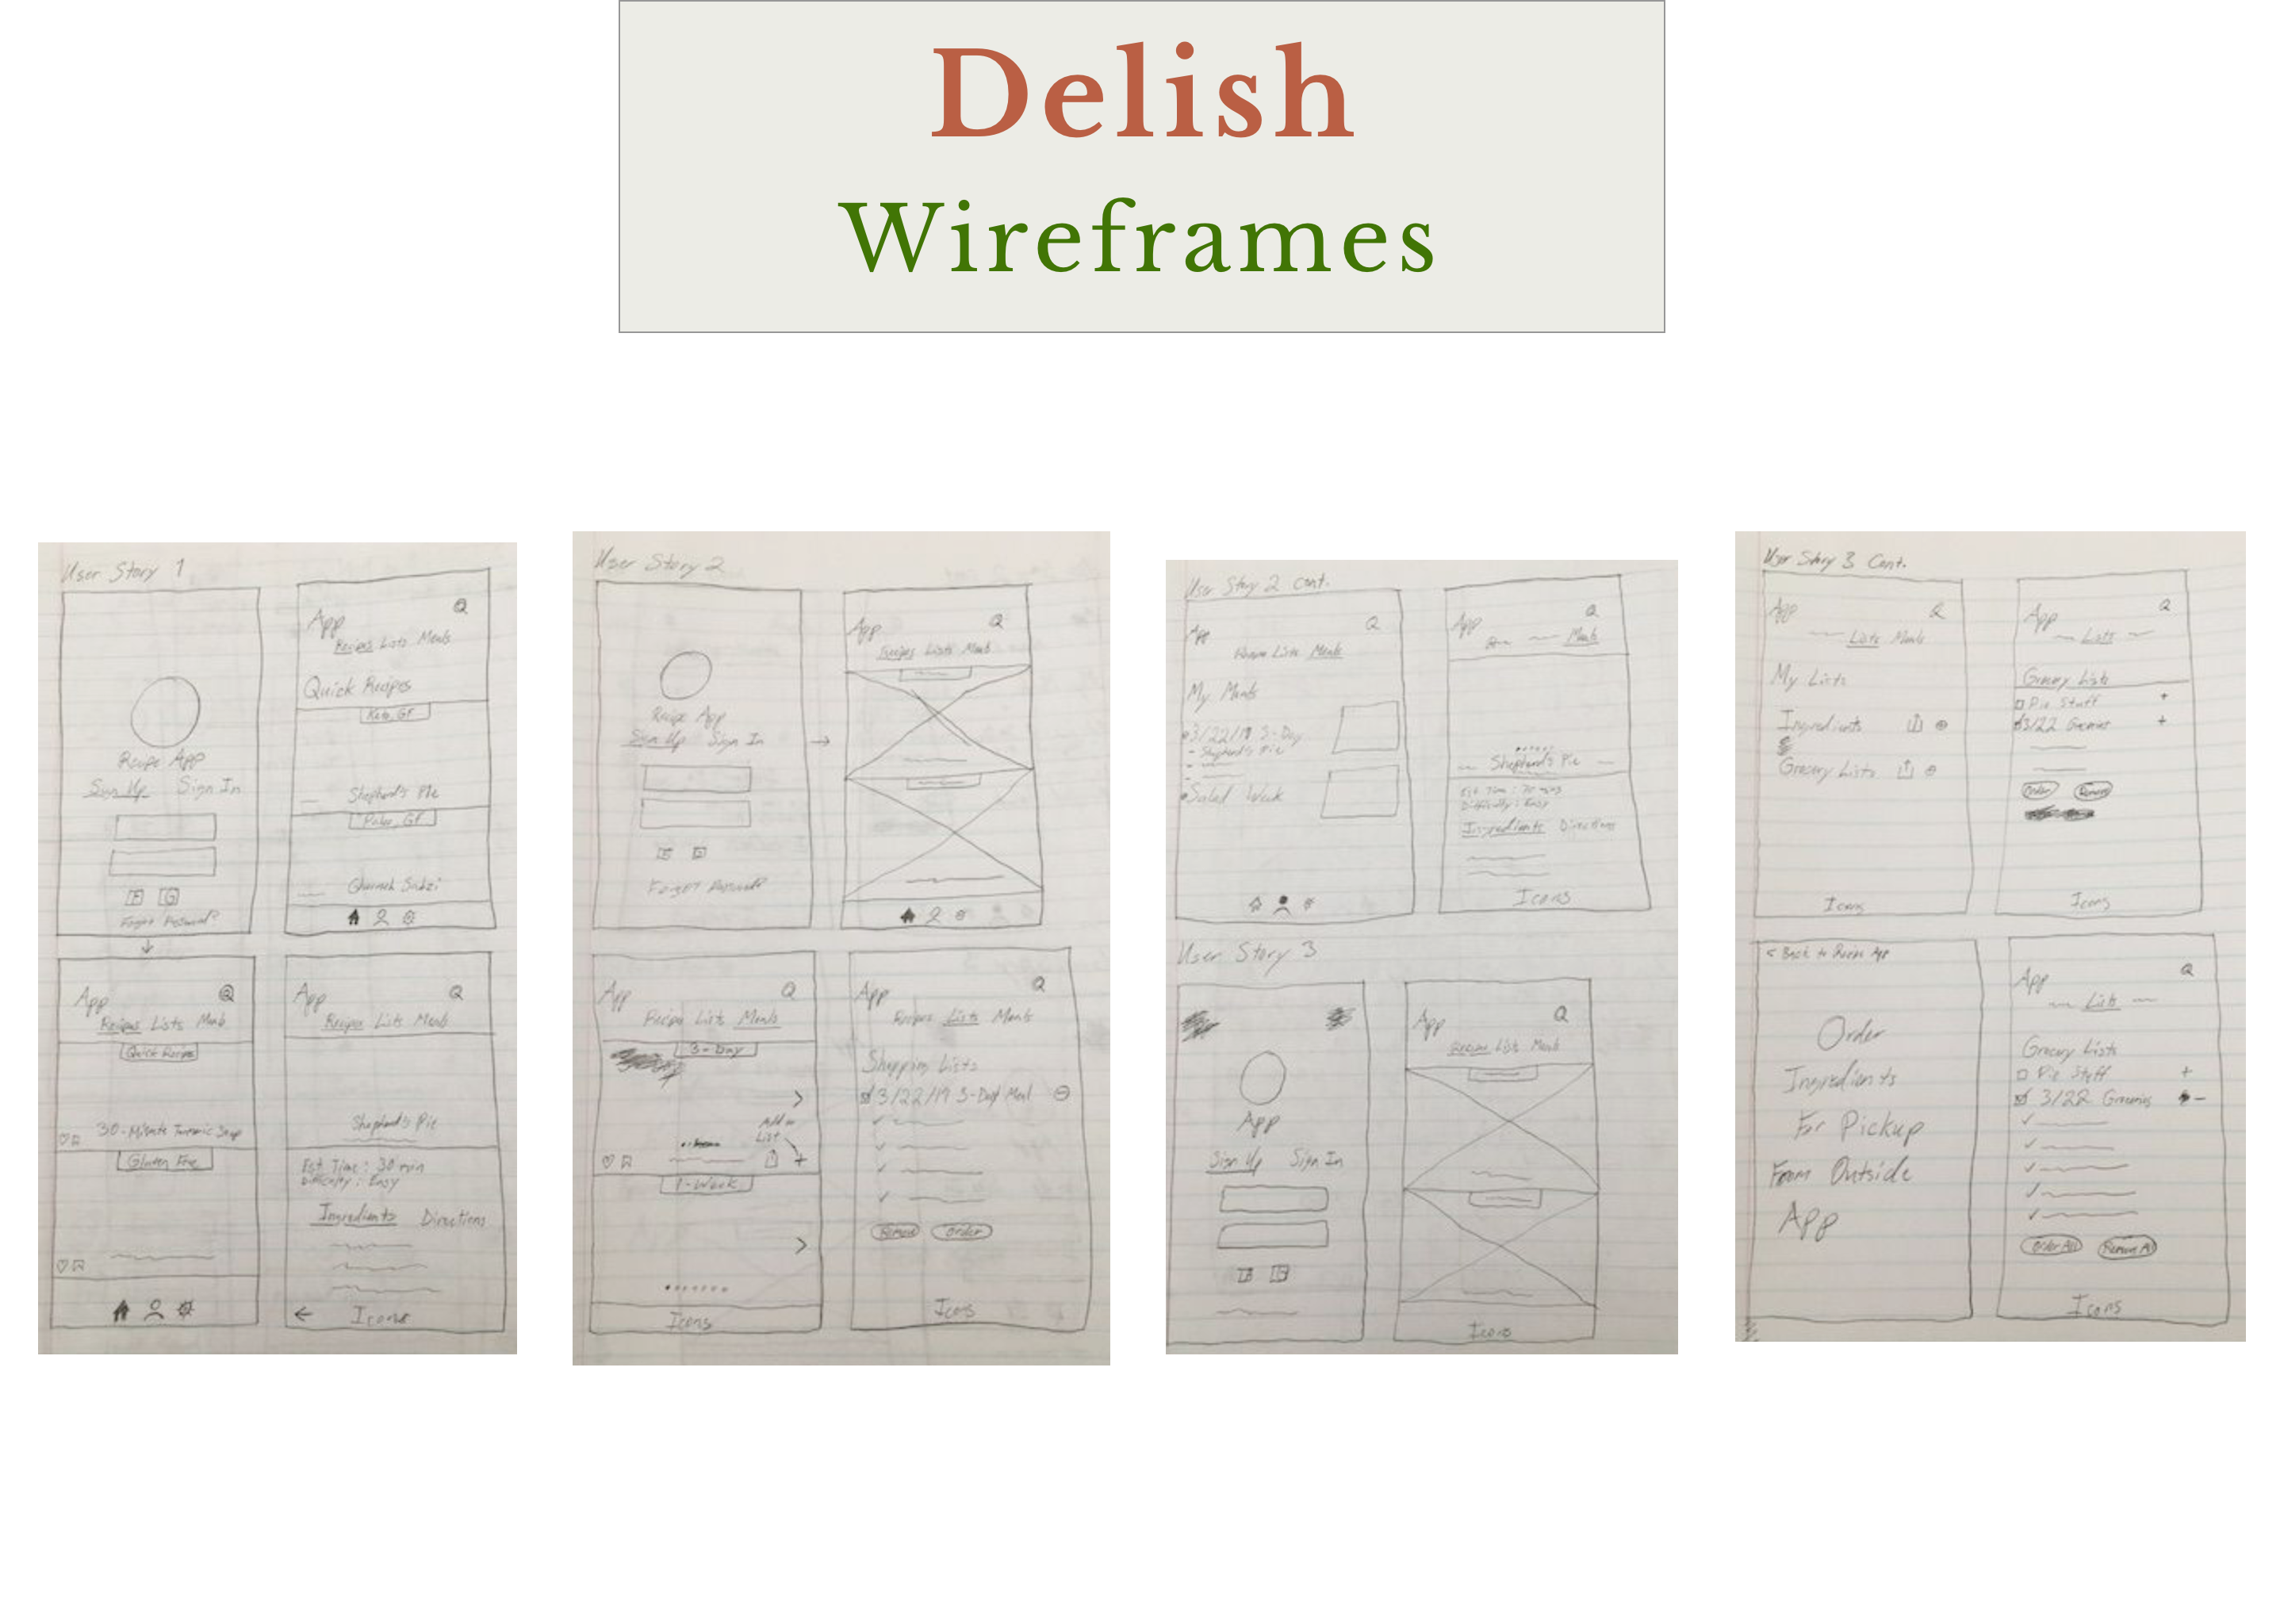 Delish
Wireframes
User Story 1
Recipe App
Sign Up Sign In
F G
Forgot Password?
App
Recipes Lists Meals
Quick Recipes
Keto, GF
Shepherd's Pie
Paleo, GF
Ghormeh Sabzi
App
Recipes Lists Meals
Quick Recipes
30-Minute Turmeric Soup
Gluten Free
App
Recipes Lists Meals
Shepherd's Pie
Est. Time: 30 min
Difficulty: Easy
Ingredients Directions
Icons
User Story 2
Recipe App
Sign Up Sign In
Forgot Password?
App
Recipes Lists Meals
App
Recipes Lists Meals
3-Day
Add to
List
1-Week
Icons
App
Recipes Lists Meals
Shopping Lists
3/22/19 3-Day Meal
Remove Order
Icons
User Story 2 Cont.
App
Recipes Lists Meals
My Meals
3/22/19 3-Day
- Shepherd's Pie
Salad Week
App
Meals
Shepherd's Pie
Difficulty: Easy
Ingredients Directions
Icons
User Story 3
App
Sign Up Sign In
App
Recipes Lists Meals
Icons
User Story 3 Cont.
App
Lists Meals
My Lists
Ingredients
Grocery Lists
Icons
App
Lists
Grocery Lists
Pie Stuff +
3/22 Groceries +
Order Remove
Icons
< Back to Recipe App
Order
Ingredients
For Pickup
From Outside
App
App
Lists
Grocery Lists
Pie Stuff +
3/22 Groceries -
Order All Remove All
Icons